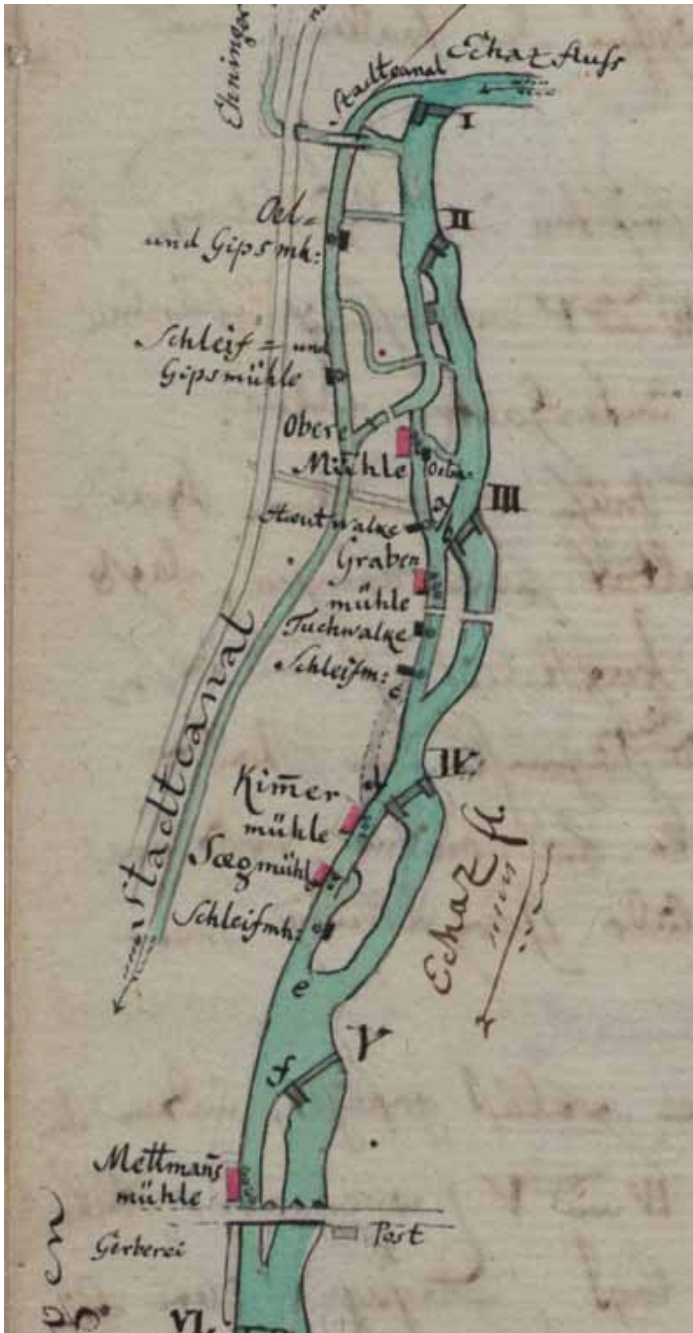 Ehninger
Stadtcanal
Echaz fluss
I
II
Oel=
und Gipsmh:
Schleif= und
Gipsmühle
Obere
Mühle
III
a
b
Hautwalke
Graben
mühle
Tuchwalke
Schleifm:
c
Stadtcanal
IV
Kim̄er
mühle
Sægmühl
Echaz fl.
Schleifmh:
e
V
f
Mettman̄s
mühle
Gerberei
Post
VI.